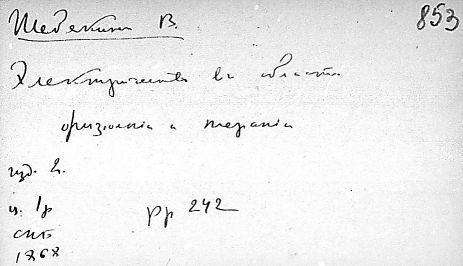 Шебекинъ В. 853
Электричество въ области
физіологіи и терапіи
изд. 2.
ц. 1 р
СПБ
1868
pp 242